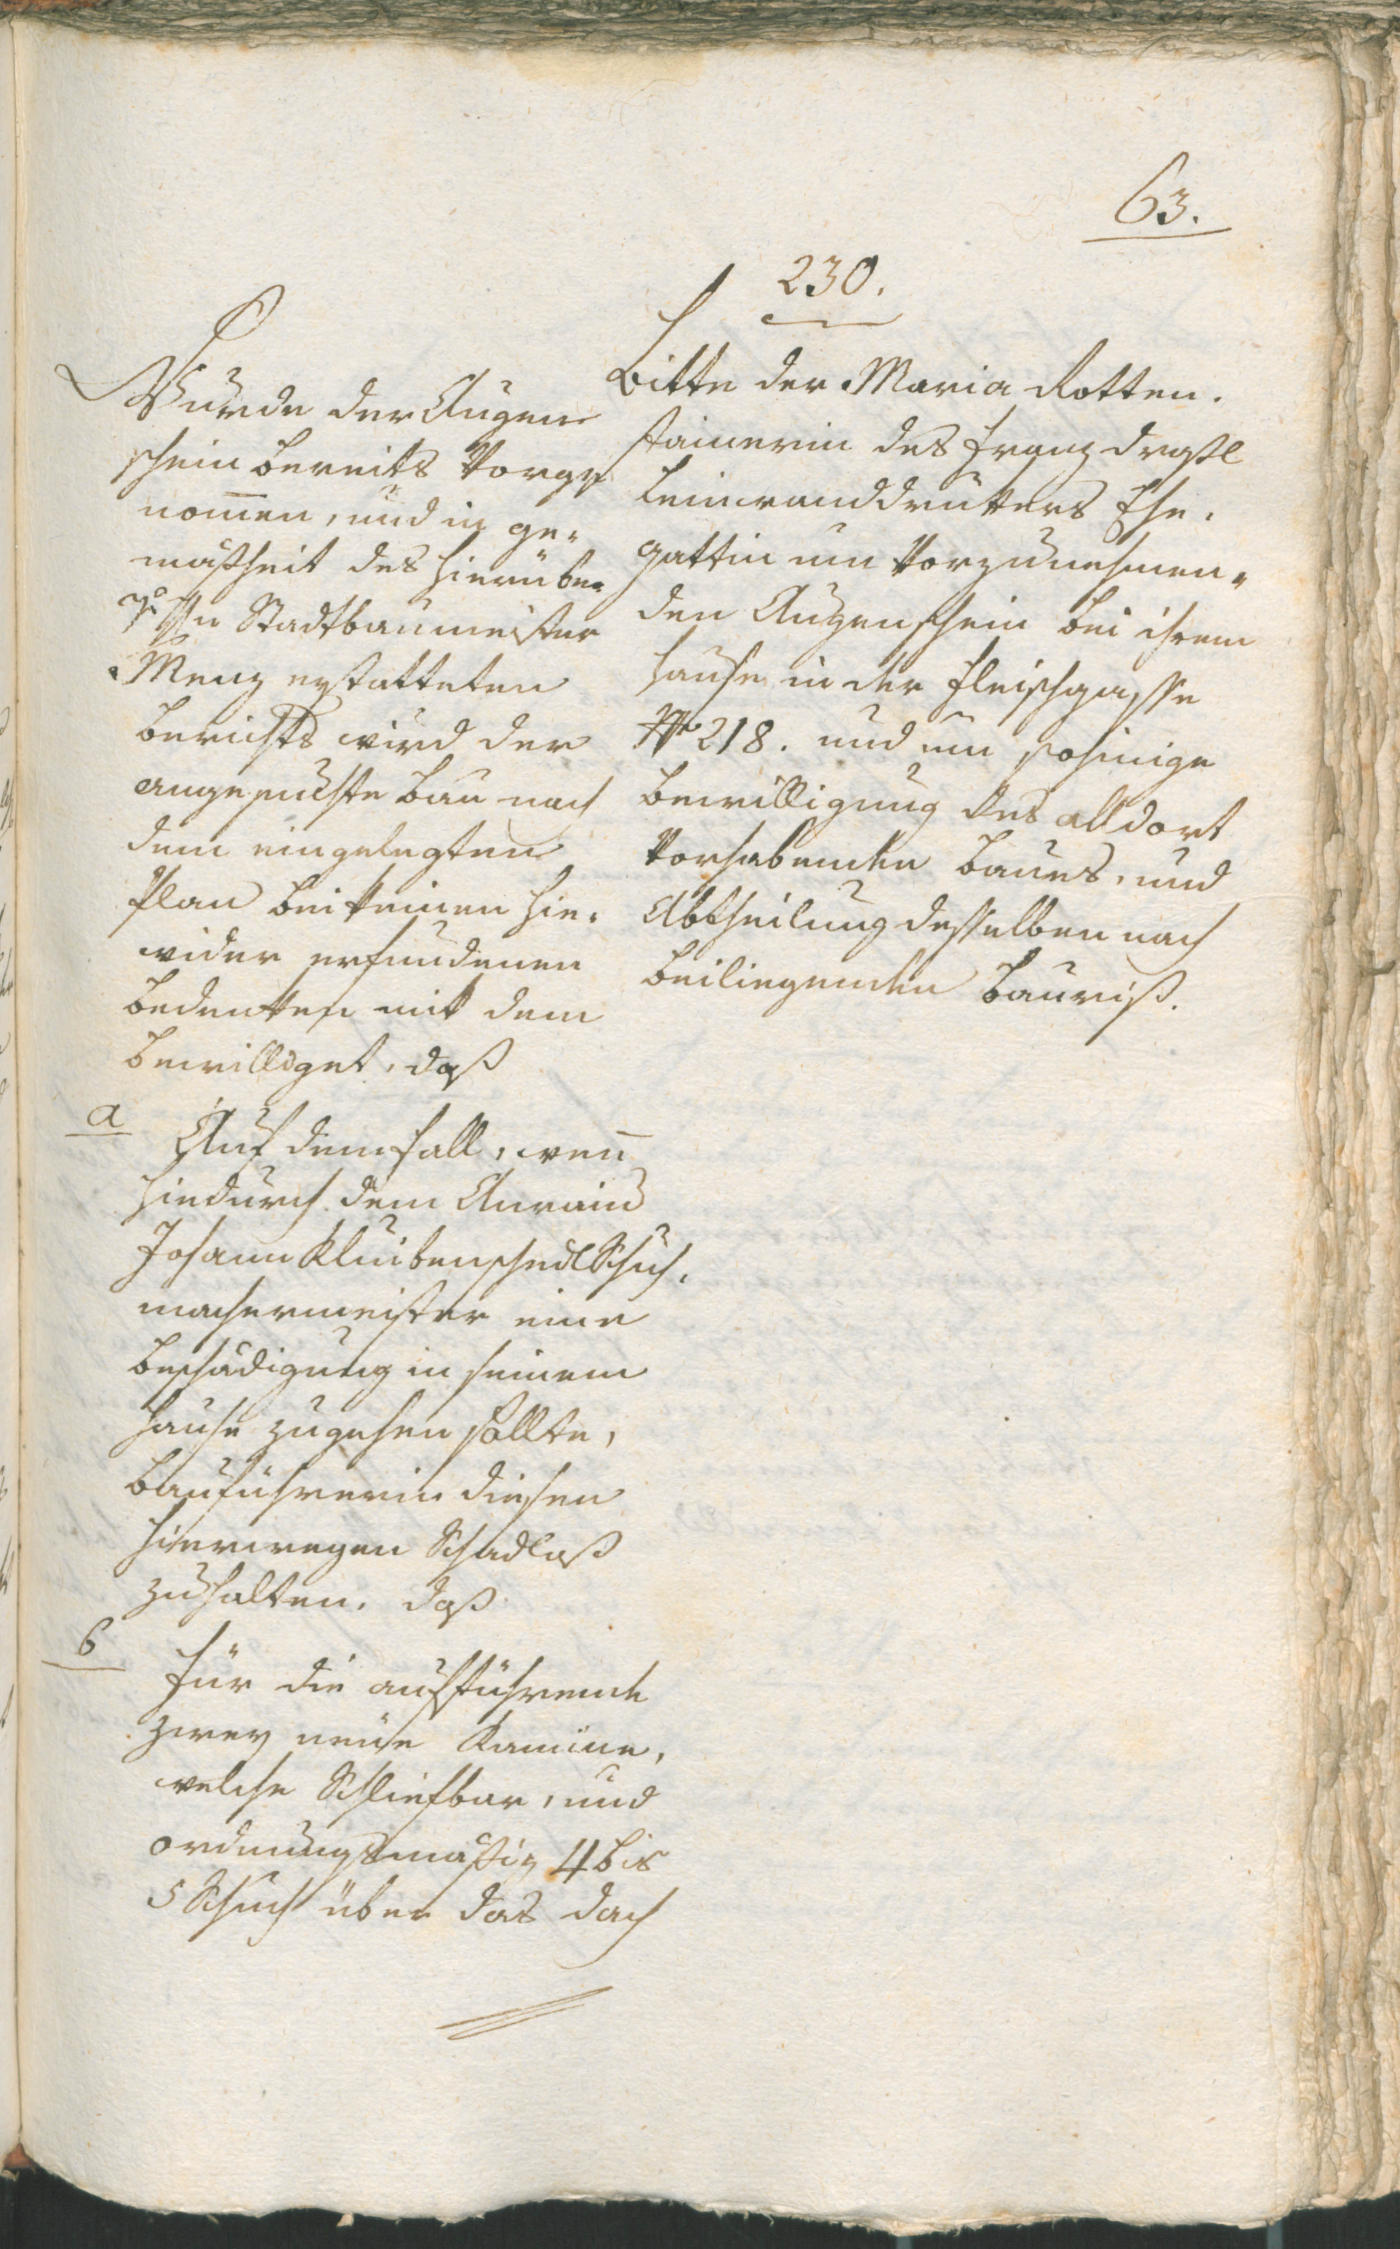 63.
230.
Bitte der Maria Rotten-
stainerin des Franz
Leinwanddruckers Ehe-
gattin um Vorzunehmen-
den Augenschein bei ihrem
Hause in der Fleischgasse
Nro 218. und um sohinige
Bewilligung des alldort
Vorhabenden Baues, und
Abtheilung desselben nach
beiliegenden Bauriß.
Wurde der Augen
schein bereits Vorge
nom̄en, und in ge-
maßheit des hierüber
Stadtbaumeister
Menz erstatteten
Berichts wird der
angesuchte Bau nach
dem eingelegten
Plan bei keinen hie-
wider erfundenen
Bedenken mit dem
bewilliget, daß
a
Auf dem Fall, wen̄
hiedurch dem Anrain
Johann Kluibenschedl Schuh-
machermeister eine
Beschädigung in seinem
Hause zugehen sollte,
Bauführerin diesen
hierwegen Schadlos
zuhalten. daß
b
Für die aufführende
zwey neüe Kamine,
welche Schliefbar, und
ordnungsmäßig 4 bis
5 Schuch über das Dach